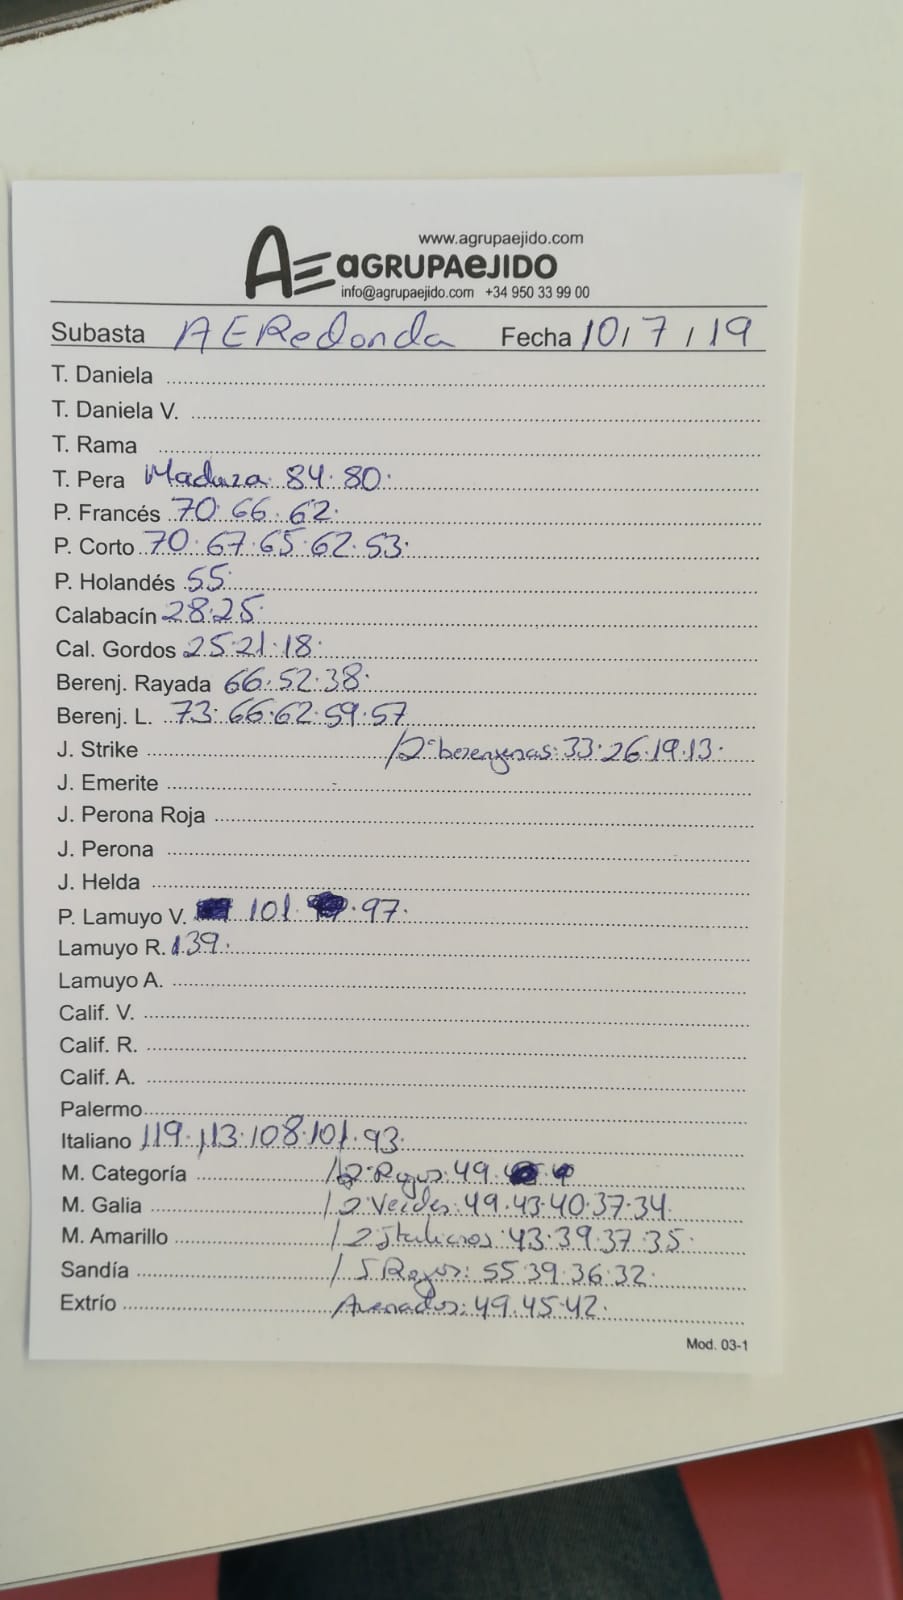 www.agrupaejido.com
AE AGRUPAEJIDO
info@agrupaejido.com +34 950 33 99 00
Subasta AERedonda Fecha 10/7/19
T. Daniela
T. Daniela V.
T. Rama
T. Pera Madura 84.80.
P. Francés 70.66.62.
P. Corto 70.67.65.62.53.
P. Holandés 55.
Calabacín 28.25.
Cal. Gordos 25.21.18.
Berenj. Rayada 66.52.38.
Berenj. L. 73.66.62.59.57
J. Strike /2ª berenjenas: 33.26.19.13.
J. Emerite
J. Perona Roja
J. Perona
J. Helda
P. Lamuyo V. 101. 97.
Lamuyo R. 139.
Lamuyo A.
Calif. V.
Calif. R.
Calif. A.
Palermo
Italiano 119.113.108.101.93.
M. Categoría /2ª Rojos: 49.
M. Galia /2 Verdes: 49.43.40.37.34.
M. Amarillo /2 Italianos: 43.39.37.35.
Sandía /5 Rojos: 55.39.36.32.
Extrío Asenados: 49.45.42.
Mod. 03-1